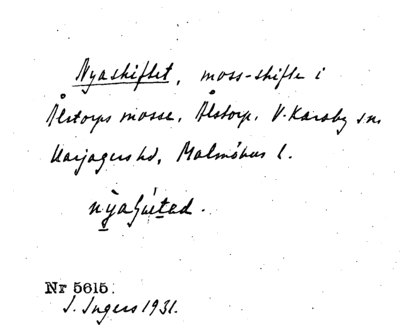 Nyashiftet, moss-shifte i
Ålstorps mosse, Ålstorp, V. Karaby sn
Harjagers hd, Malmöhus l.
Nr 5615.
I. Ingers 1931.